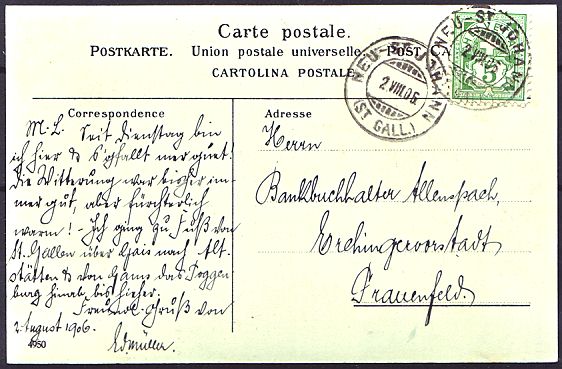 Carte postale.
POSTKARTE. Union postale universelle. POST CA
CARTOLINA POSTALE
NEU-ST. JOHANN
2.VIII.06.
(ST GALL.)
NEU-ST. JOHANN
2.VIII.06
5
Correspondence
Adresse
M. L. Seit Dienstag bin
ich hier & s'gfallt mer guet!
Die Witterung war bisher im-
mer gut, aber fürchterlich
warm! - Ich ging zu Fuß von
St. Gallen über Gais nach Alt-
stätten & von Gams das Toggen
burg hinab bis hieher.
Freundl. Gruß von
2. August 1906.
Edmüller.
4950
Herrn
Bankbuchhalter Allenspach,
Erchingervorstadt
Frauenfeld